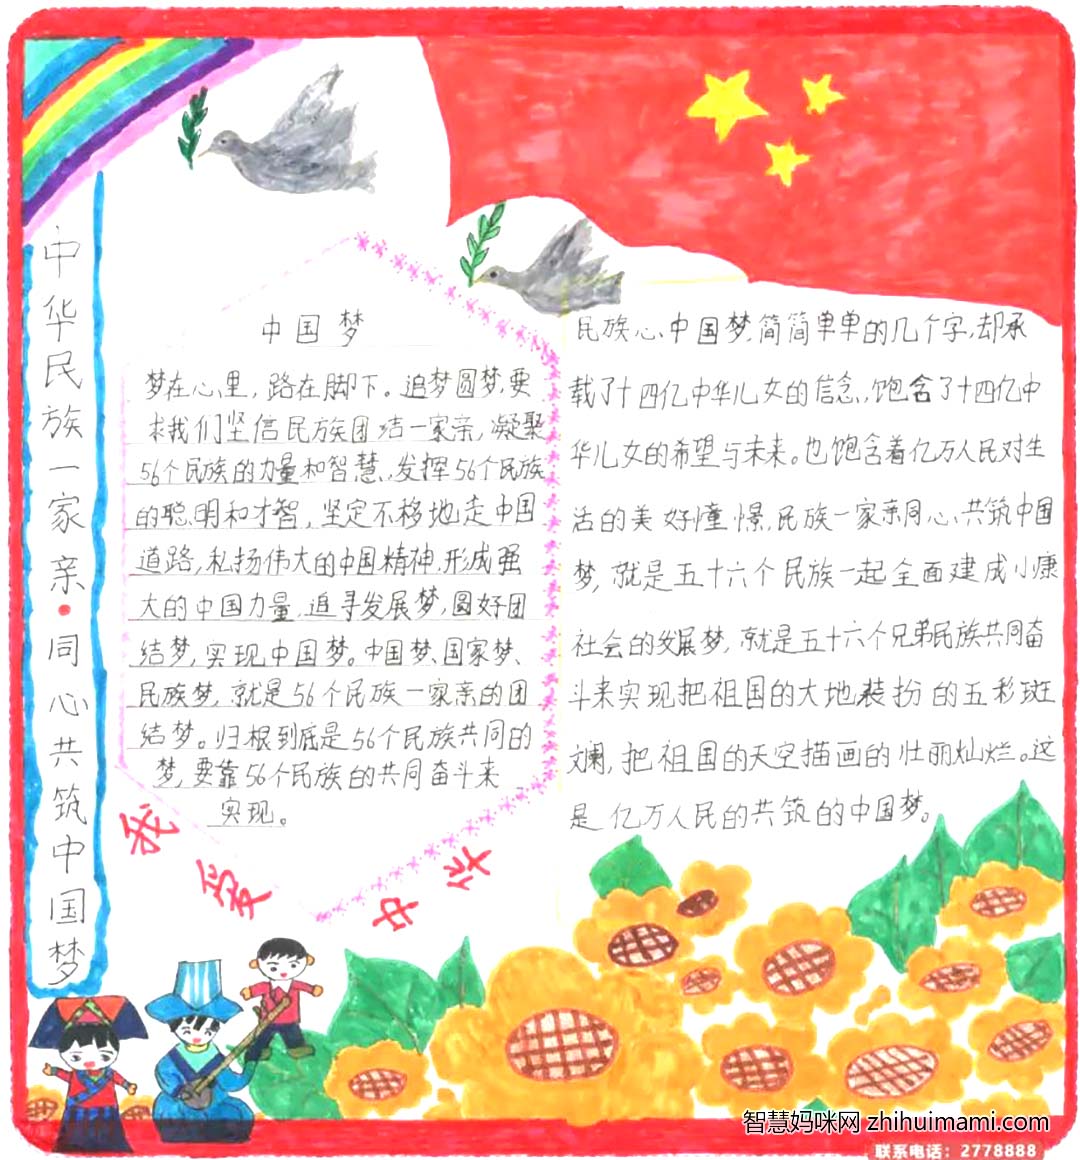 中华民族一家亲·同心共筑中国梦
中国梦
梦在心里，路在脚下。追梦圆梦，要
求我们坚信民族团结一家亲，凝聚
56个民族的力量和智慧，发挥56个民族
的聪明和才智，坚定不移地走中国
道路，私扬伟大的中国精神，形成强
大的中国力量，追寻发展梦，圆好团
结梦，实现中国梦。中国梦、国家梦、
民族梦，就是56个民族一家亲的团
结梦。归根到底是56个民族共同的
梦，要靠56个民族的共同奋斗来
实现。
我爱中华
民族心、中国梦，简简单单的几个字，却承
载了十四亿中华儿女的信念，饱含了十四亿中
华儿女的希望与未来。也饱含着亿万人民对生
活的美好憧憬，民族一家亲同心、共筑中国
梦，就是五十六个民族一起全面建成小康
社会的发展梦，就是五十六个兄弟民族共同奋
斗来实现把祖国的大地装扮的五彩斑
斓，把祖国的天空描画的壮丽灿烂。这
是亿万人民的共筑的中国梦。
智慧妈咪网 zhihuimami.com
联系电话：2778888